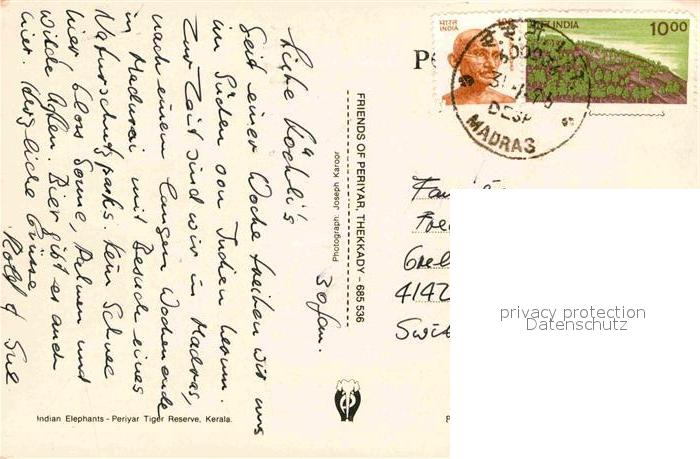 30 Jan.
Liebe Köchli's
Seit einer Woche treiben wir uns
im Süden von Indien herum.
Zur Zeit sind wir in Madras,
nach einem langen Wochenende
in Madurai mit Besuch eines
Naturschutzparks. Kein Schnee
hier, bloss Sonne, Palmen und
wilde Affen. Bier gibt es auch
hier. Herzliche Grüsse
Rolf & Sue
Indian Elephants - Periyar Tiger Reserve, Kerala.
FRIENDS OF PERIYAR, THEKKADY - 685 536
Photograph: Joseph Karoor
भारत
INDIA
100
INDIA
1000
MADRAS
4142
privacy protection
Datenschutz